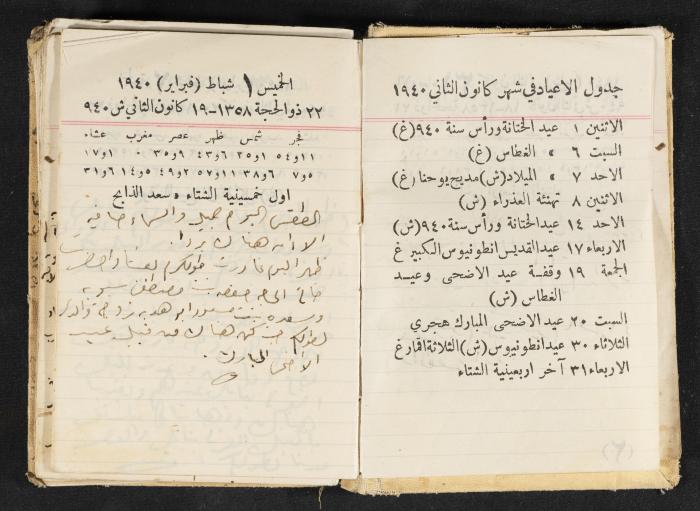 جدول الاعياد في شهر كانون الثاني ١٩٤٠
الاثنين ١ عيد الختانة ورأس سنة ٩٤٠ (غ)
السبت ٦ » الغطاس (غ)
الاحد ٧ » الميلاد (ش) مديح يوحنا (غ)
الاثنين ٨ تهنئة العذراء (ش)
الاحد ١٤ عيد الختانة ورأس سنة ٩٤٠ (ش)
الاربعاء ١٧ عيد القديس انطونيوس الكبير غ
الجمعة ١٩ وقفة عيد الاضحى وعيد
الغطاس (ش)
السبت ٢٠ عيد الاضحى المبارك هجري
الثلاثاء ٣٠ عيد انطونيوس (ش) الثلاثة اقمار غ
الاربعاء ٣١ آخر اربعينية الشتاء
(٦)
الخميس ١ شباط (فبراير) ١٩٤٠
٢٢ ذو الحجة ١٣٥٨ - ١٩ كانون الثاني ش ٩٤٠
فجر شمس ظهر عصر مغرب عشاء
١١و٥٤ ١و٢٥ ٦و٤٣ ٩و٣٥ ٠ ١و١٧
٥و٧ ٦و٣٨ ١١و٥٧ ٢و٤٩ ٥و١٤ ٦و٣١
اول خمسينية الشتاء » سعد الذابح
الطقس اليوم جميل والسماء صافية
الا انه هنالك بردا.
ظهر اليوم غادرت طولكرم
الحاجة مصطفى
وسعده بنت مسعود ابو هديه زوجة والدي
لطولكرم هناك قبل عيد
الاضحى المبارك.